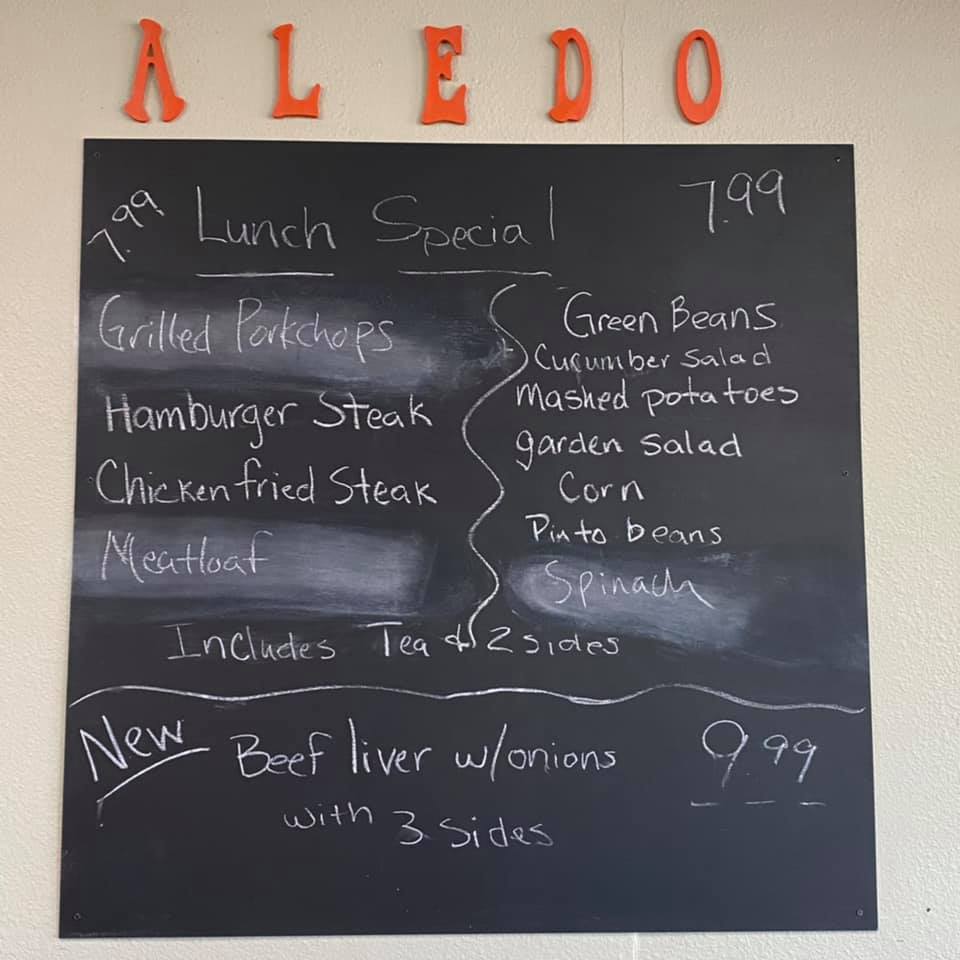 ALEDO
7.99 Lunch Special 7.99
Grilled Porkchops
Hamburger Steak
Chicken fried Steak
Meatloaf
Green Beans
Cucumber Salad
Mashed potatoes
garden salad
Corn
Pinto beans
Spinach
Includes Tea & 2 sides
New Beef liver w/onions 9.99
with 3 sides